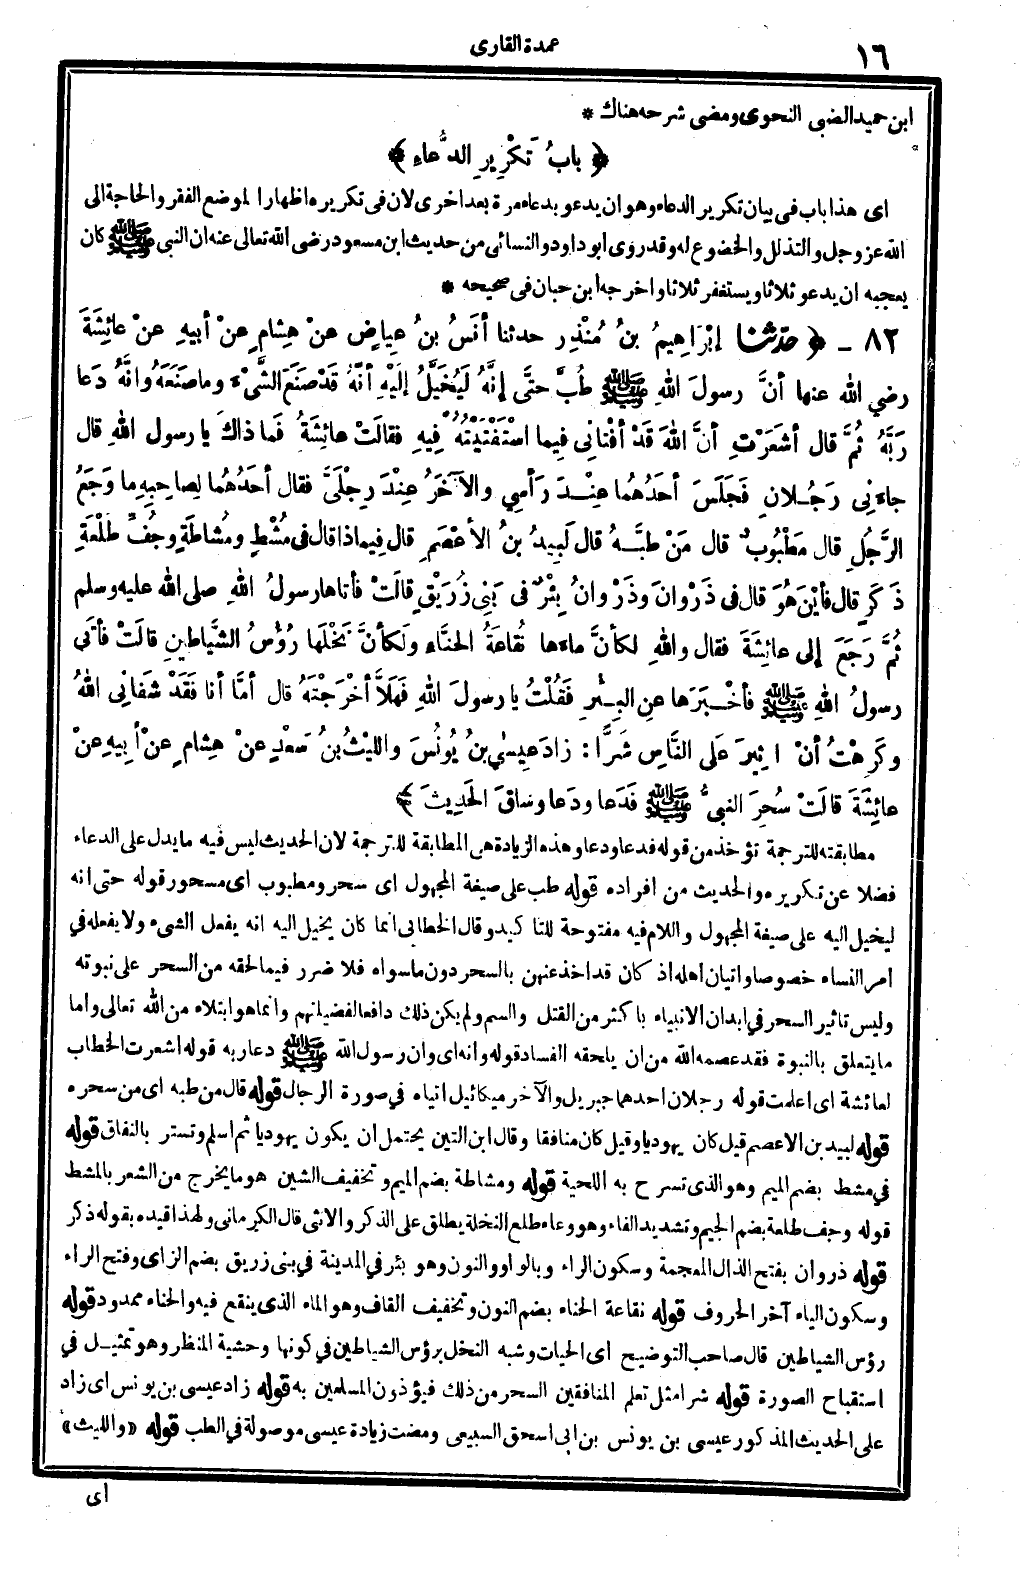 ١٦
عمدة القارى
ابن حميد الضبى النحوى ومضى شرحه هناك *
﴿ بابُ تَكْرِيرِ الدُّعاءِ ﴾
اى هذا باب فى بيان تكرير الدعاء وهو ان يدعو بدعاء مرة بعد اخرى لان فى تكريره اظهارا لموضع الفقر والحاجة الى
الله عز وجل والتذلل والخضوع له وقد روى ابو داود والنسائى من حديث ابن مسعود رضى الله تعالى عنه ان النبى ﷺ كان
يعجبه ان يدعو ثلاثا ويستغفر ثلاثا واخرجه ابن حبان فى صحيحه *
٨٢ - ﴿ حدّثنا إبْرَاهِيمُ بنُ مُنْذِرٍ حدثنا أنَسُ بنُ عِياضٍ عنْ هِشامٍ عنْ أبيهِ عنْ عائِشَةَ
رضي الله عنها أنَّ رسولَ اللهِ ﷺ طُبَّ حتَّى إنَّهُ لَيُخَيَّلُ إلَيْهِ أنَّهُ قَدْ صَنَعَ الشَّىْءَ وماصَنَعَهُ وانَّهُ دَعا
رَبَّهُ ثُمَّ قال أشَعَرْتِ أنَّ اللهَ قَدْ أفْتانِى فِيما اسْتَفْتَيْتُهُ فِيهِ فقالَتْ عائِشَةُ فَما ذاكَ يا رسول اللهِ قال
جاءَنِى رَجُلانِ فَجَلَسَ أحَدُهُما عِنْدَ رَأسِي والآخَرُ عِنْدَ رِجْلَىَّ فقال أحَدُهُما لِصاحِبِهِ ما وَجَعُ
الرَّجُلِ قال مَطْبُوبٌ قال مَنْ طَبَّهُ قال لَبِيدُ بنُ الأعْصَمِ قال فِيما ذا قال فى مُشْطٍ ومُشاطَةٍ وجُفِّ طَلْعَةِ
ذَكَرٍ قال فأيْنَ هُوَ قال فى ذَرْوانَ وذَرْوانُ بِئْرٌ فى بَنِى زُرَيْقٍ قالَتْ فأتاها رسولُ اللهِ صلى الله عليه وسلم
ثُمَّ رَجَعَ إلى عائِشَةَ فقال واللهِ لكأنَّ ماءَها نُقاعَةُ الحِنَّاءِ ولكأنَّ نَخْلَها رُؤُسُ الشَّياطينِ قالَتْ فأتَى
رسولُ اللهِ ﷺ فأخْبَرَها عنِ البِئْرِ فَقُلْتُ يا رسولَ اللهِ فهَلاَّ أخْرَجْتَهُ قال أمَّا أنا فَقَدْ شَفانِى اللهُ
وكَرِهْتُ أنْ اثِيرَ عَلَى النَّاسِ شَرًّا: زادَ عِيسَى بنُ يُونُسَ واللَّيْثُ بنُ سَعْدٍ عنْ هِشامٍ عنْ أبِيهِ عنْ
عائِشَةَ قالَتْ سُحِرَ النبىُّ ﷺ فَدَعا ودَعا وساقَ الحَدِيثَ ﴾
مطابقته للترجمة تؤخذ من قوله فدعا ودعا وهذه الزيادة هى المطابقة للترجمة لان الحديث ليس فيه ما يدل على الدعاء
فضلا عن تكريره والحديث من افراده قوله طب على صيغة المجهول اى سحر ومطبوب اى مسحور قوله حتى انه
ليخيل اليه على صيغة المجهول واللام فيه مفتوحة للتأكيد وقال الخطابى انما كان يخيل اليه انه يفعل الشىء ولا يفعله في
امر النساء خصوصا واتيان اهله اذ كان قد اخذ عنهن بالسحر دون ما سواه فلا ضرر فيما لحقه من السحر على نبوته
وليس تاثير السحر في ابدان الانبياء باكثر من القتل والسم ولم يكن ذلك دافعا لفضيلتهم وانما هو ابتلاء من الله تعالى واما
ما يتعلق بالنبوة فقد عصمه الله من ان يلحقه الفساد قوله وانه اى وان رسول الله ﷺ دعا ربه قوله اشعرت الخطاب
لعائشة اى اعلمت قوله رجلان احدهما جبريل والآخر ميكائيل اتياه في صورة الرجال قوله قال من طبه اى من سحره
قوله لبيد بن الاعصم قيل كان يهوديا وقيل كان منافقا وقال ابن التين يحتمل ان يكون يهوديا ثم اسلم وتستر بالنفاق قوله
في مشط بضم الميم وهو الذى تسرح به اللحية قوله ومشاطة بضم الميم وتخفيف الشين هو ما يخرج من الشعر بالمشط
قوله وجف طلعة بضم الجيم وتشديد الفاء وهو وعاء طلع النخلة يطلق على الذكر والانثى قال الكرمانى ولهذا قيده بقوله ذكر
قوله ذروان بفتح الذال المعجمة وسكون الراء وبالواو والنون وهو بئر في المدينة في بنى زريق بضم الزاى وفتح الراء
وسكون الياء آخر الحروف قوله نقاعة الحناء بضم النون وتخفيف القاف وهو الماء الذى ينقع فيه والحناء ممدود قوله
رؤس الشياطين قال صاحب التوضيح اى الحيات وشبه النخل برؤس الشياطين في كونها وحشية المنظر وهو تمثيل في
استقباح الصورة قوله شرا مثل تعلم المنافقين السحر من ذلك فيؤذون المسلمين به قوله زاد عيسى بن يونس اى زاد
على الحديث المذكور عيسى بن يونس بن ابى اسحق السبيعى ومضت زيادة عيسى موصولة في الطب قوله «والليث»
اى